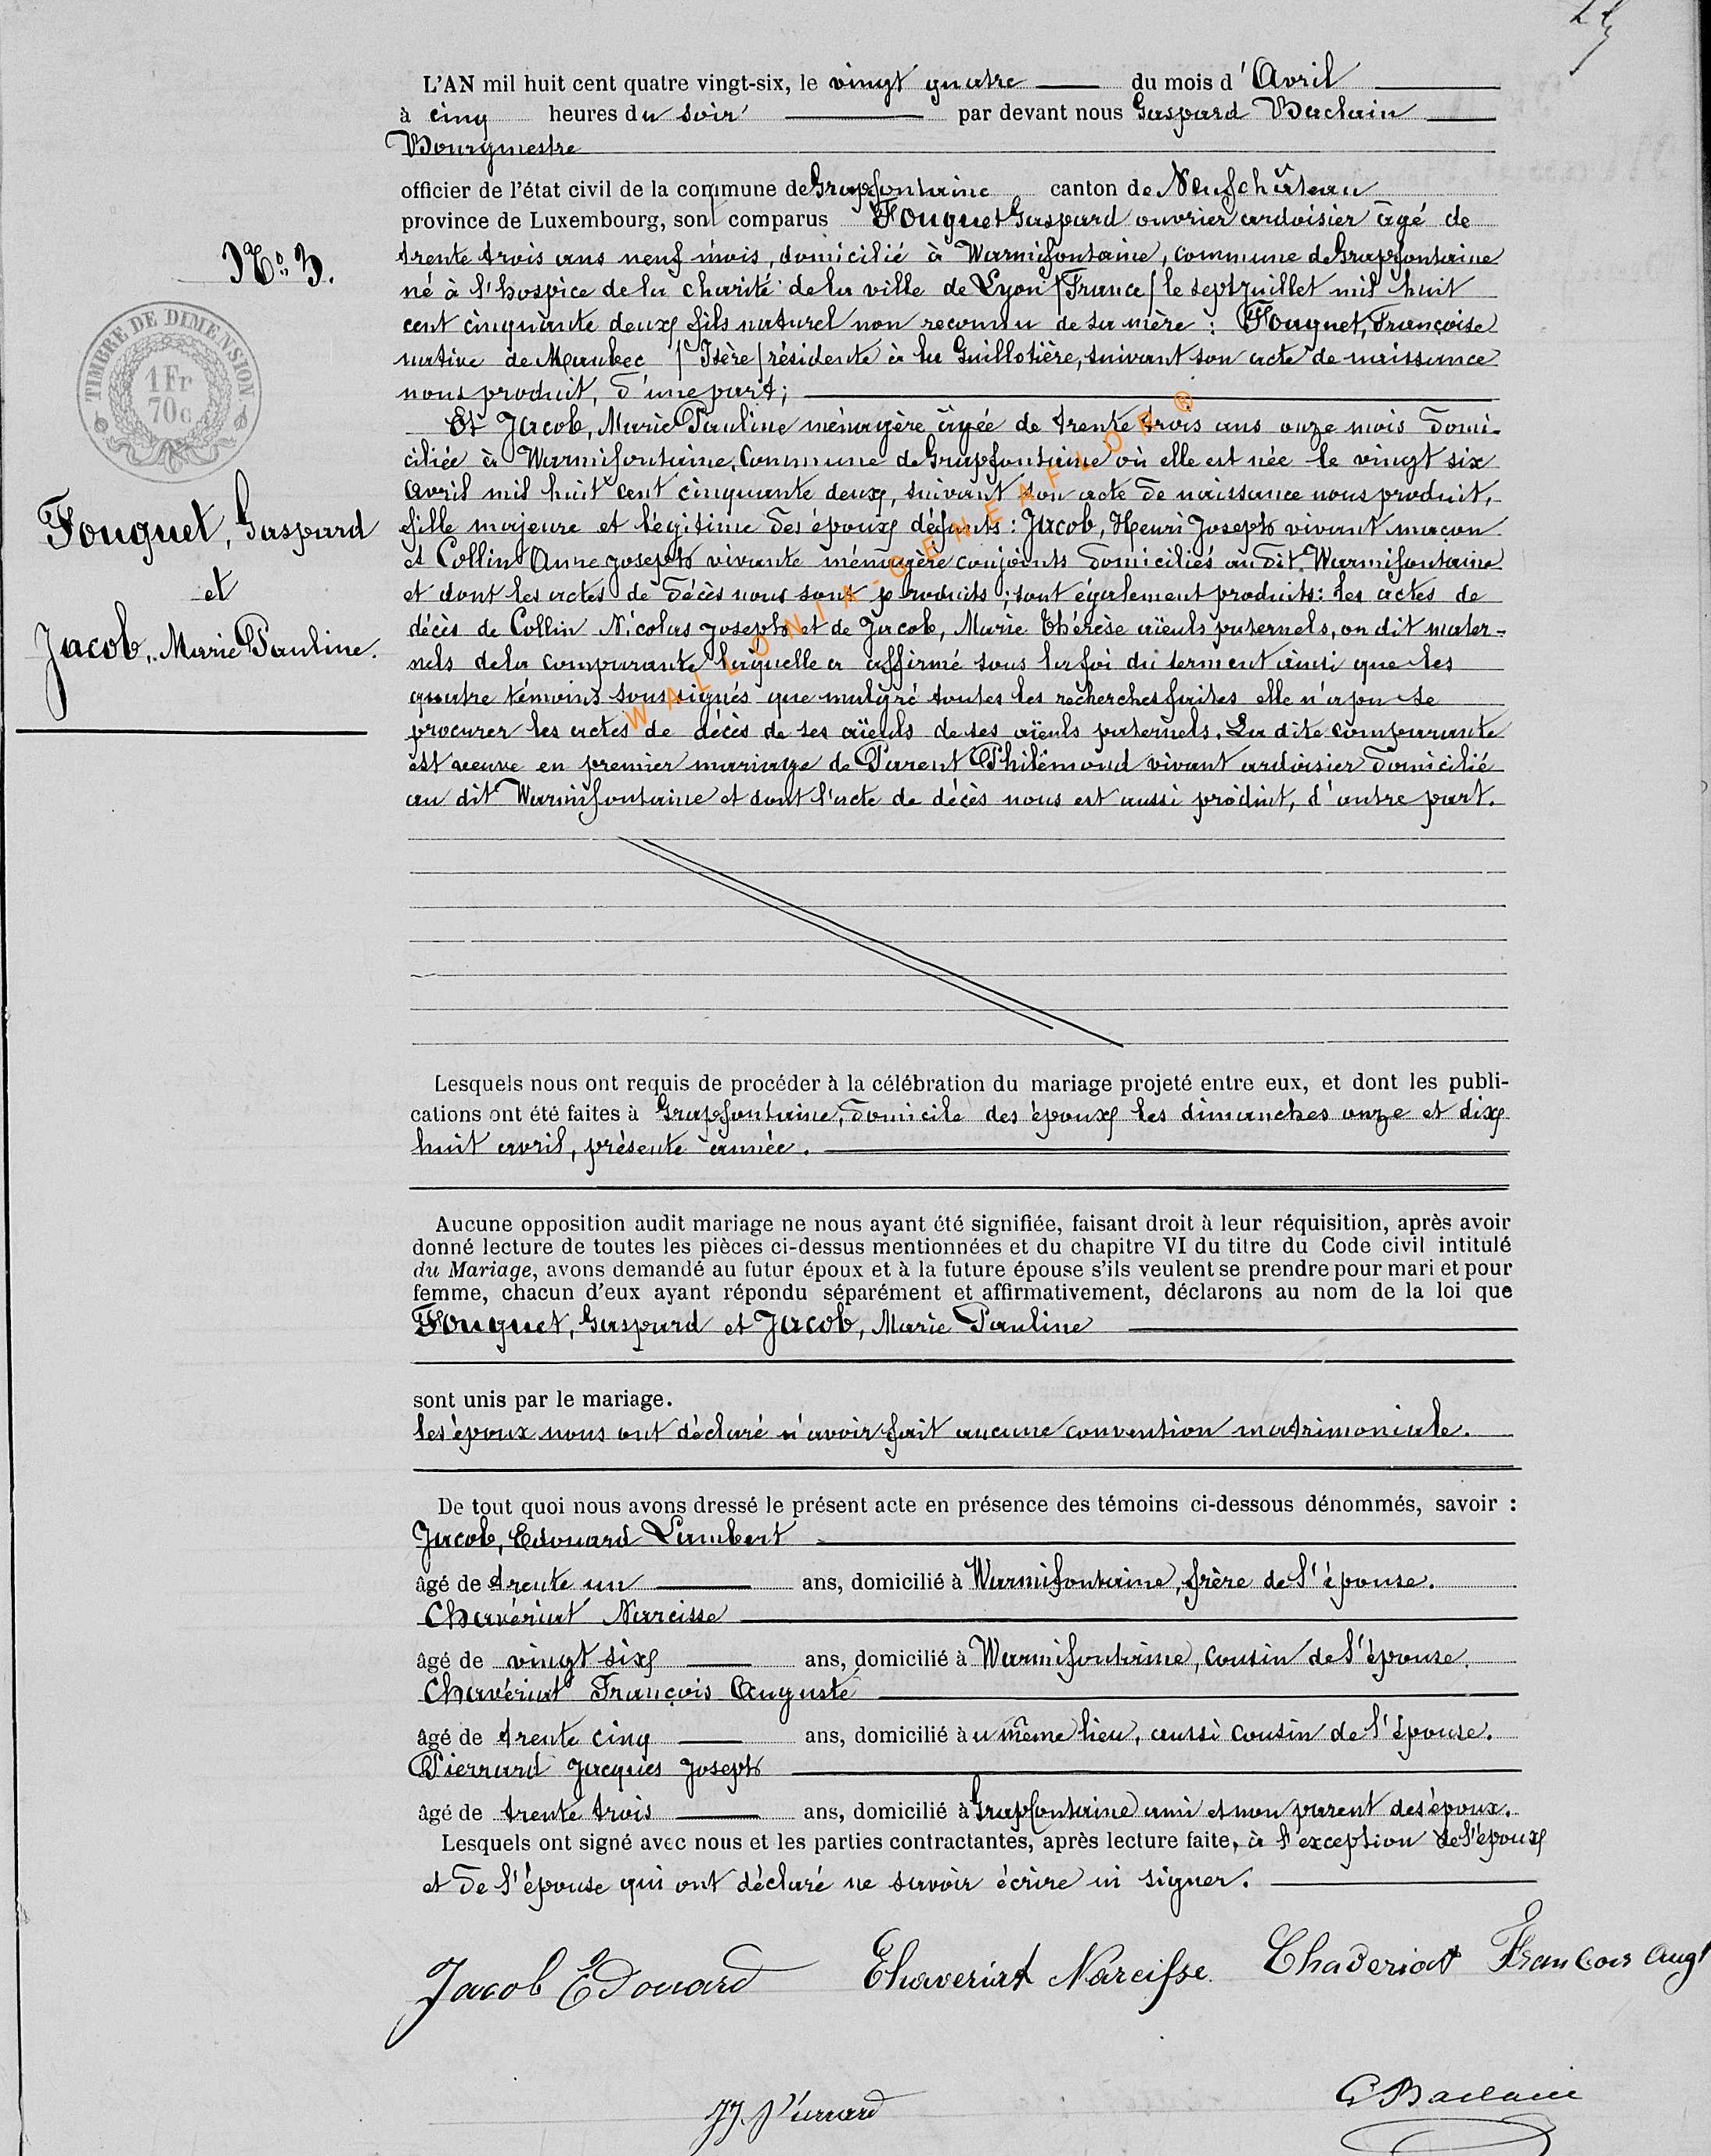 L'AN mil huit cent quatre vingt-six, le vingt quatre du mois d'Avril
à cinq heures du soir par devant nous Gaspard Baclain
Bourgmestre
officier de l'état civil de la commune de Grapfontaine canton de Neufchâteau
province de Luxembourg, sont comparus Fouguet Gaspard ouvrier ardoisier âgé de
trente trois ans neuf mois, domicilié à Warmifontaine, commune de Grapfontaine
né à l'hospice de la charité de la ville de Lyon /France/ le sept juillet mil huit
cent cinquante deux, fils naturel non reconnu de sa mère : Fouguet, Françoise
native de Maubec /Isère/ résidente à la Guillotière, suivant son acte de naissance
nous produit, d'une part;
No 3.
TIMBRE DE DIMENSION
1 Fr
70c
Fouguet, Gaspard
et
Jacob, Marie Pauline.
Et Jacob, Marie Pauline ménagère âgée de trente trois ans onze mois domi-
ciliée à Warmifontaine, Commune de Grapfontaine où elle est née le vingt six
avril mil huit cent cinquante deux, suivant son acte de naissance nous produit,
fille majeure et légitime des époux défunts : Jacob, Henri Joseph vivant maçon
et Collin Anne Joseph vivante ménagère conjoints domiciliés au dit Warmifontaine
et dont les actes de décès nous sont produits ; sont également produits : les actes de
décès de Collin Nicolas Joseph et de Jacob, Marie Thérèse aïeuls paternels, on dit mater-
nels de la comparante laquelle a affirmé sous la foi du serment ainsi que les
quatre témoins soussignés que malgré toutes les recherches faites elle n'a pu se
procurer les actes de décès de ses aïeuls de ses aïeuls paternels. La dite comparante
est veuve en premier mariage de Parent Philémond vivant ardoisier domicilié
au dit Warmifontaine et dont l'acte de décès nous est aussi produit, d'autre part.
WALLONIA-GENEAFLOR ®
Lesquels nous ont requis de procéder à la célébration du mariage projeté entre eux, et dont les publi-
cations ont été faites à Grapfontaine, domicile des époux les dimanches onze et dix
huit avril, présente année.
Aucune opposition audit mariage ne nous ayant été signifiée, faisant droit à leur réquisition, après avoir
donné lecture de toutes les pièces ci-dessus mentionnées et du chapitre VI du titre du Code civil intitulé
du Mariage, avons demandé au futur époux et à la future épouse s'ils veulent se prendre pour mari et pour
femme, chacun d'eux ayant répondu séparément et affirmativement, déclarons au nom de la loi que
Fouguet, Gaspard et Jacob, Marie Pauline
sont unis par le mariage.
les époux nous ont déclaré n'avoir fait aucune convention matrimoniale.
De tout quoi nous avons dressé le présent acte en présence des témoins ci-dessous dénommés, savoir :
Jacob, Edouard Lambert
âgé de trente un ans, domicilié à Warmifontaine, frère de l'épouse.
Chavériat Narcisse
âgé de vingt six ans, domicilié à Warmifontaine, cousin de l'épouse.
Chavériat François Auguste
âgé de trente cinq ans, domicilié au même lieu, aussi cousin de l'épouse.
Pierrard Jacques Joseph
âgé de trente trois ans, domicilié à Grapfontaine ami et non parent des époux.
Lesquels ont signé avec nous et les parties contractantes, après lecture faite, à l'exception de l'époux
et de l'épouse qui ont déclaré ne savoir écrire ni signer.
Jacob Edouard Chaveriat Narcisse Chaveriat François Augt
JJ. Pierrard G Baclain